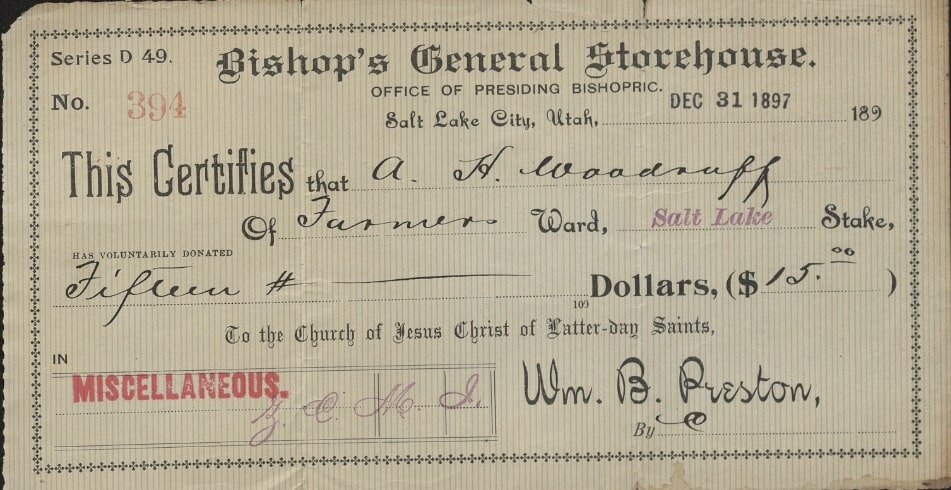 Series D 49.
Bishop's General Storehouse.
No. 394
OFFICE OF PRESIDING BISHOPRIC.
Salt Lake City, Utah, DEC 31 1897 189
This Certifies that A. H. Woodruff
Of Farmers Ward, Salt Lake Stake,
HAS VOLUNTARILY DONATED
Fifteen # Dollars, ($ 15.00 )
100
To the Church of Jesus Christ of Latter-day Saints,
IN
MISCELLANEOUS.
Z. C. M. I.
Wm. B. Preston,
By